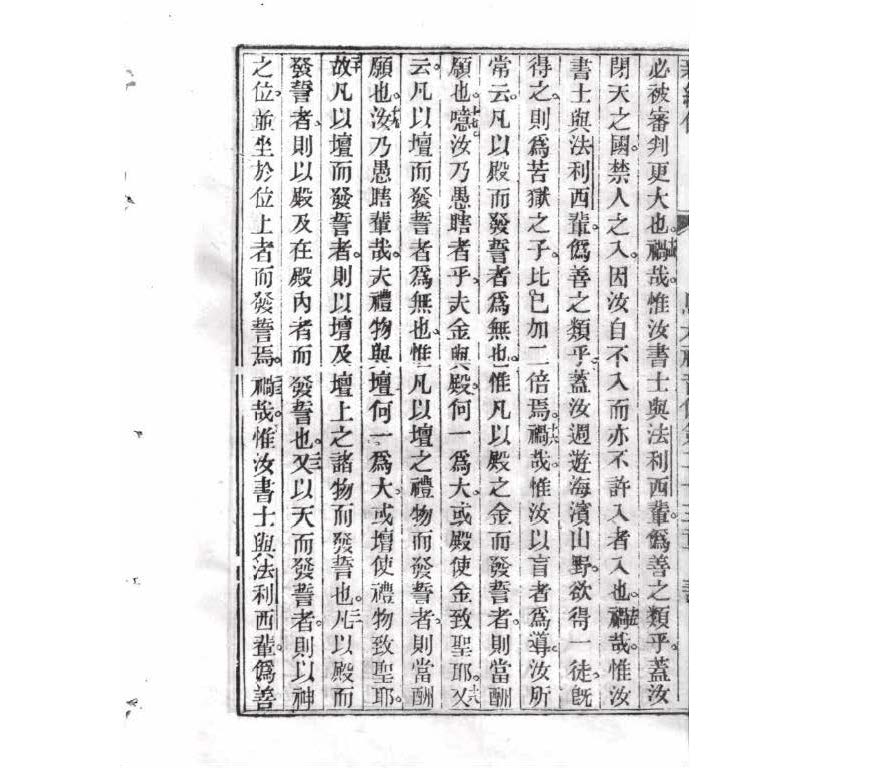 必被審判更大也。禍哉。惟汝書士與法利西輩。僞善之類乎。蓋汝
閉天之國。禁人之入。因汝自不入。而亦不許入者入也。禍哉。惟汝
書士與法利西輩。僞善之類乎。蓋汝週遊海濱山野。欲得一徒。既
得之。則爲苦獄之子。比已加二倍焉。禍哉。惟汝以盲者爲導。汝所
常云。凡以殿而發誓者爲無也。惟凡以殿之金而發誓者。則當酬
願也。噫。汝乃愚瞎者乎。夫金與殿。何一爲大。或殿使金致聖耶。又
云。凡以壇而發誓者爲無也。惟凡以壇之禮物而發誓者。則當酬
願也。汝乃愚瞎輩哉。夫禮物與壇何一爲大。或壇使禮物致聖耶。
故凡以壇而發誓者。則以壇及壇上之諸物而發誓也。凡以殿而
發誓者。則以殿及在殿內者而發誓也。又以天而發誓者。則以神
之位。並坐於位上者而發誓焉。禍哉。惟汝書士與法利西輩。僞善